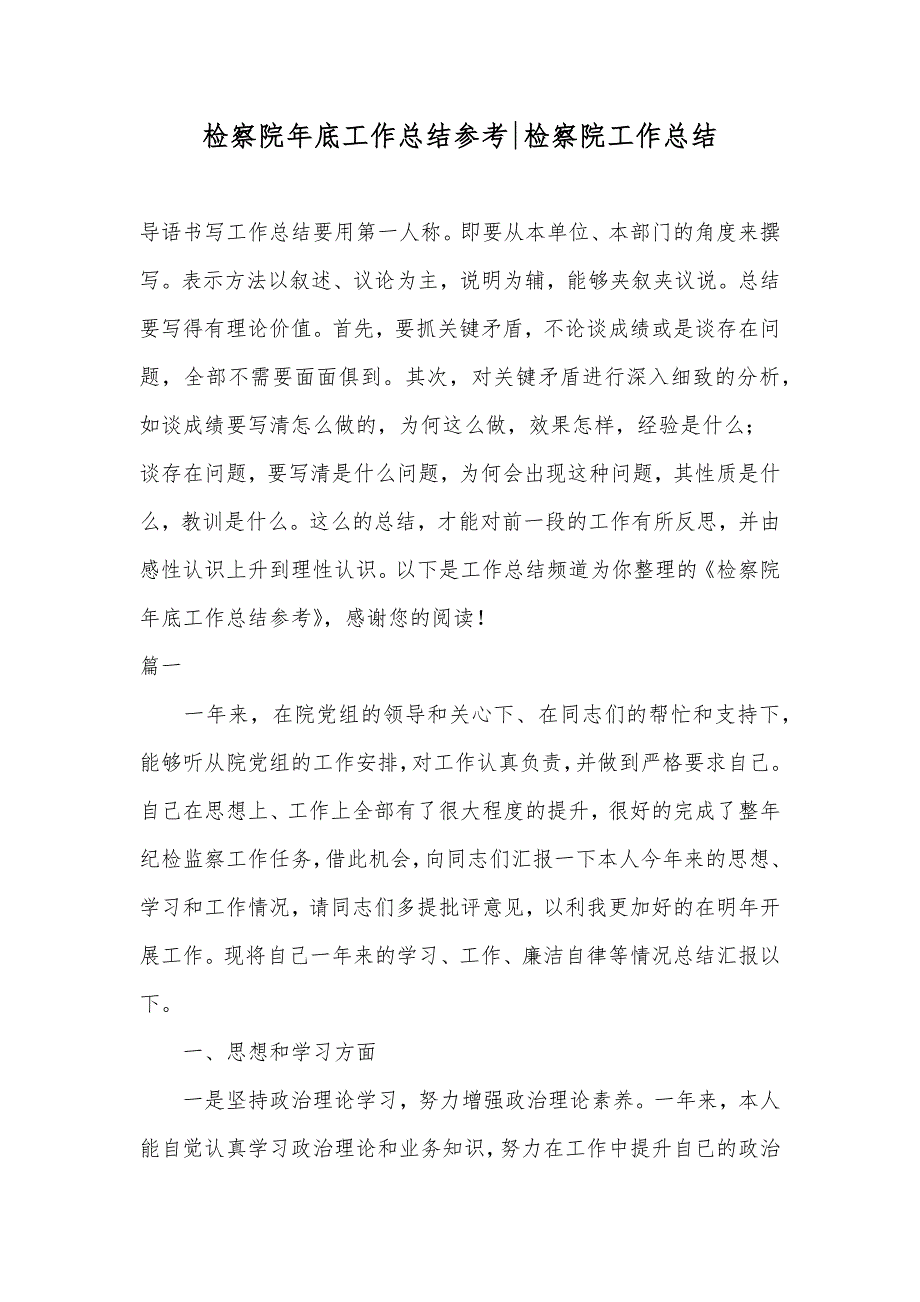 检察院年底工作总结参考|检察院工作总结
导语书写工作总结要用第一人称。即要从本单位、本部门的角度来撰
写。表示方法以叙述、议论为主，说明为辅，能够夹叙夹议说。总结
要写得有理论价值。首先，要抓关键矛盾，不论谈成绩或是谈存在问
题，全部不需要面面俱到。其次，对关键矛盾进行深入细致的分析，
如谈成绩要写清怎么做的，为何这么做，效果怎样，经验是什么；
谈存在问题，要写清是什么问题，为何会出现这种问题，其性质是什
么，教训是什么。这么的总结，才能对前一段的工作有所反思，并由
感性认识上升到理性认识。以下是工作总结频道为你整理的《检察院
年底工作总结参考》，感谢您的阅读！
篇一
一年来，在院党组的领导和关心下、在同志们的帮忙和支持下，
能够听从院党组的工作安排，对工作认真负责，并做到严格要求自己。
自己在思想上、工作上全部有了很大程度的提升，很好的完成了整年
纪检监察工作任务，借此机会，向同志们汇报一下本人今年来的思想、
学习和工作情况，请同志们多提批评意见，以利我更加好的在明年开
展工作。现将自己一年来的学习、工作、廉洁自律等情况总结汇报以
下。
一、思想和学习方面
一是坚持政治理论学习，努力增强政治理论素养。一年来，本人
能自觉认真学习政治理论和业务知识，努力在工作中提升自己的政治